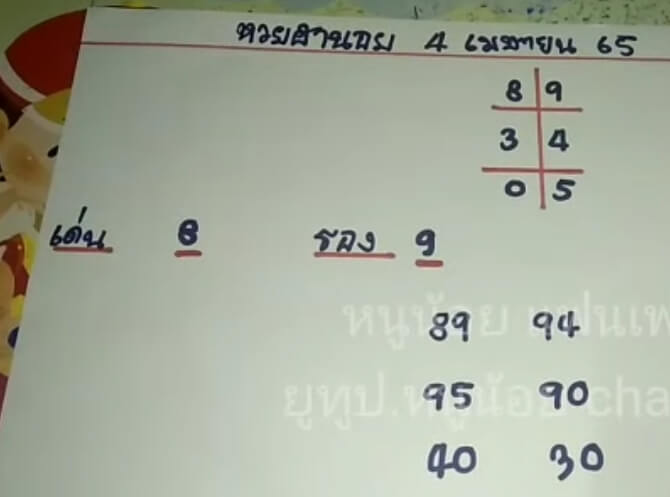 หวยฮานอย 4 เมษายน 65
8 9
3 4
0 5
เด่น 8 รอง 9
89 94
95 90
40 30
หนูน้อย แฟนเพ
ยูทูป.หนูน้อย cha